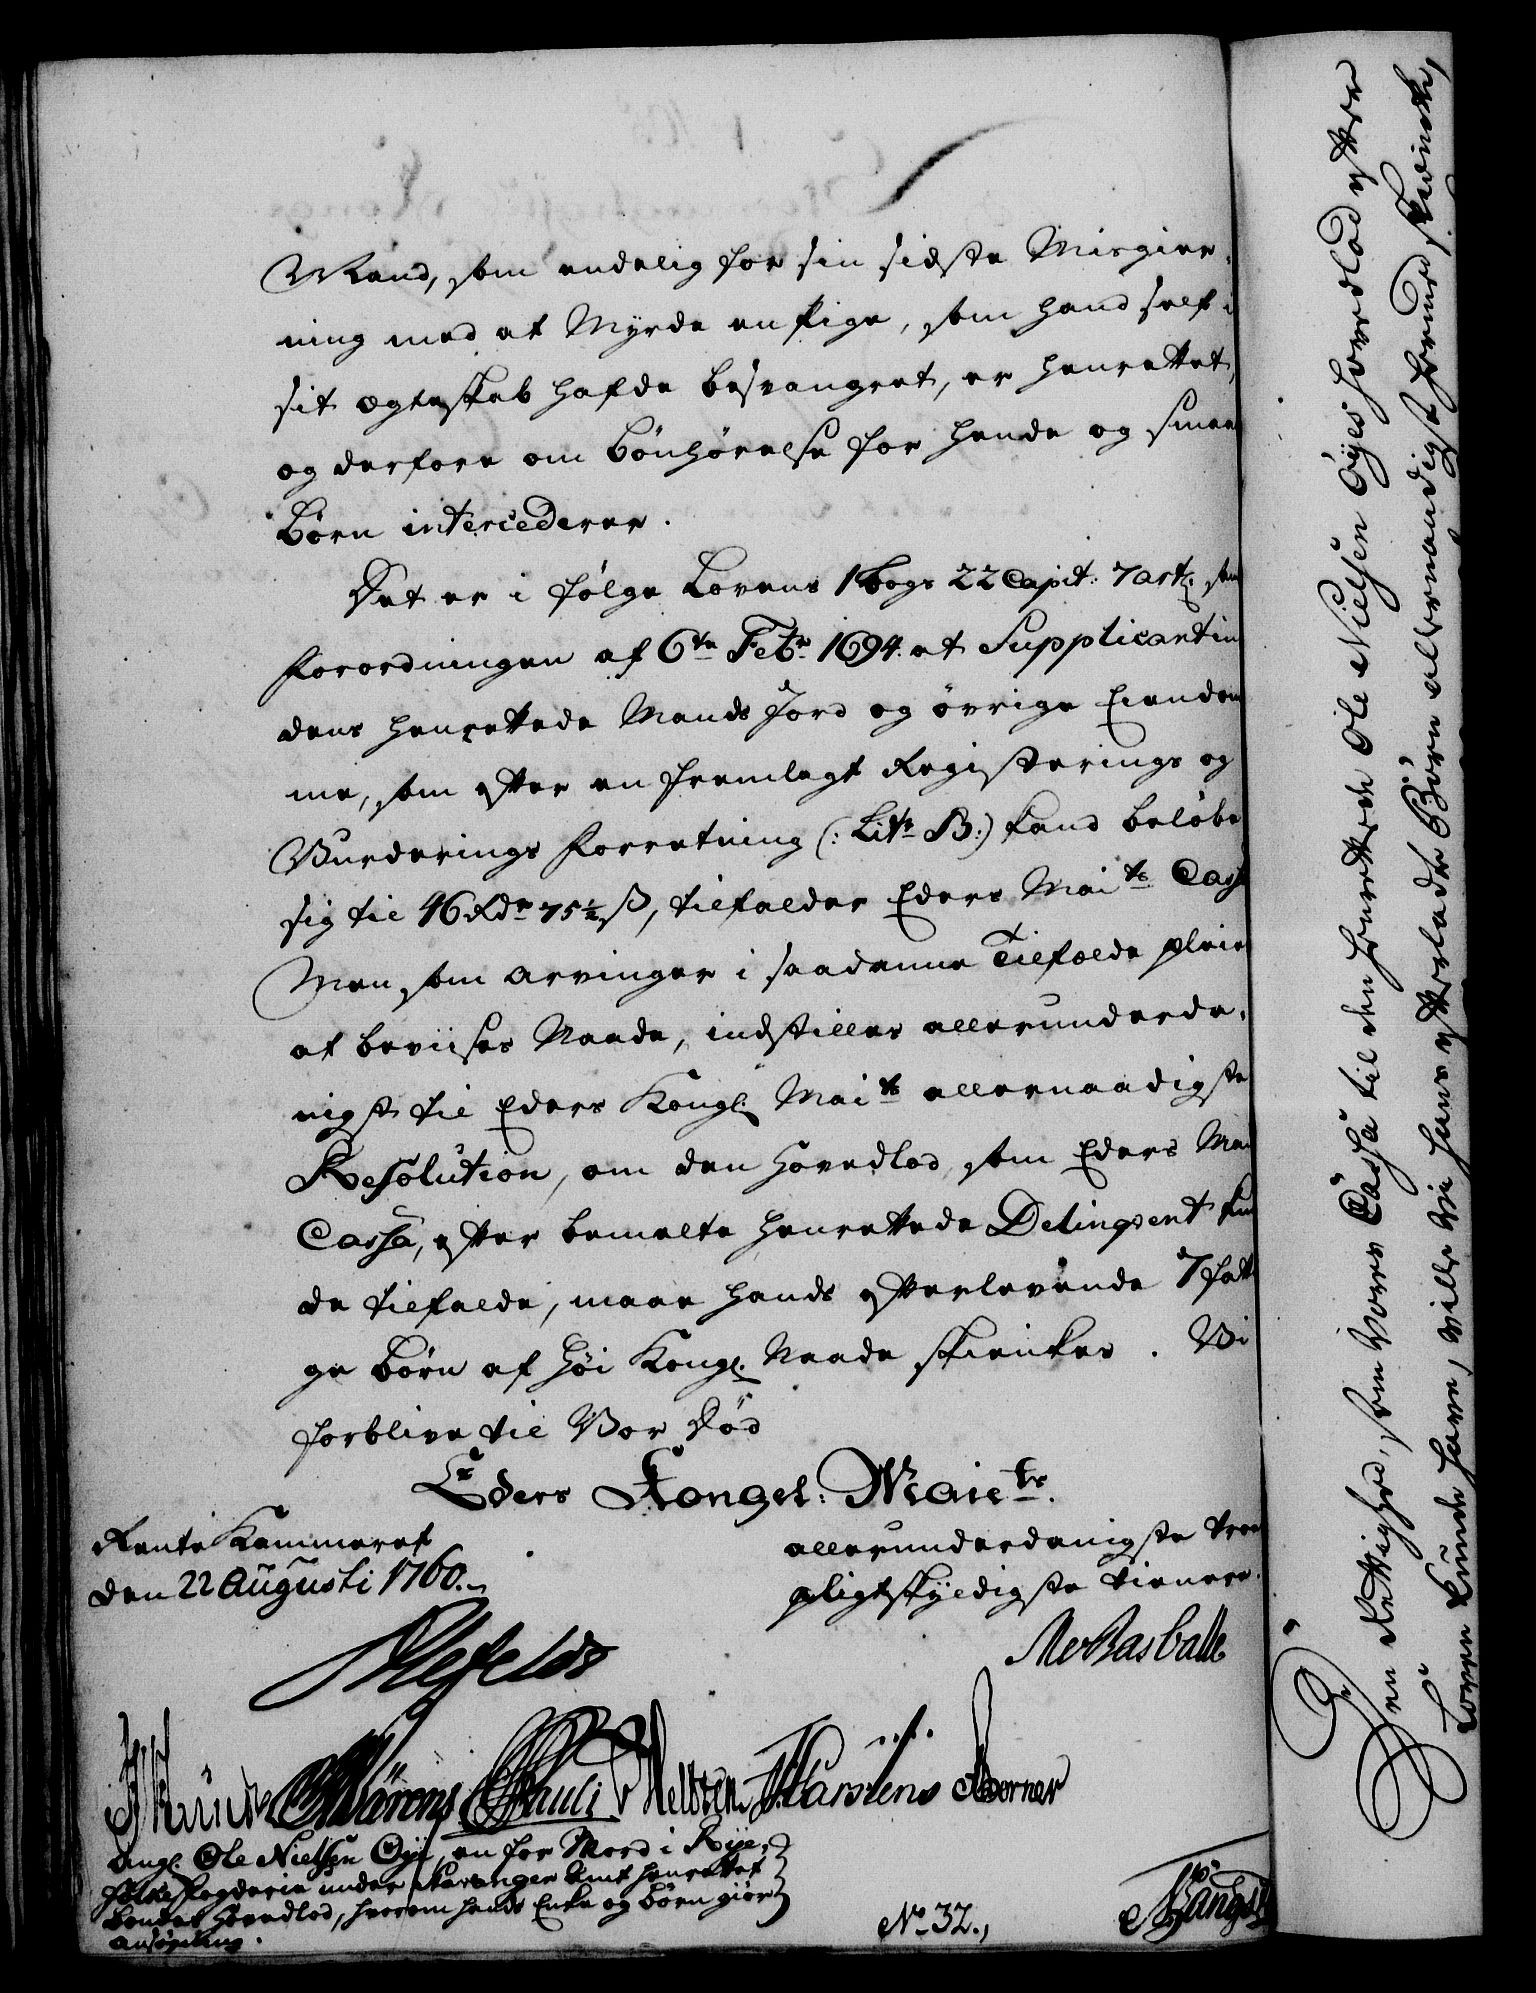 Mand, som endelig for sin sidste Misgier-
ning med at Myrde en Pige, som hand self i
sit ægteskab hafde besvangret, er henrettet,
og derfore om bønhørelse for hende og smaa
Børn intercederer.
Det er i følge Lovens 1 bogs 22 Capit: 7 art:
Forordningen af 6te Febr 1694. at Supplicantin
dens henrettede Mands Jord og øvrige Eiendom
me, som efter en fremlagt Registerings og
Vurderings Forretning (: Litr B:) kand beløbe
sig til 46 Rdr 75½ ß, tilfalder Eders Maits Cass
Men som arvinger i saadanne Tilfælde pleie
at beviises Naade, indstilles allerunderda-
nigst til Eders Kongl: Maits allernaadigste
Resolution, om den Hovedlod, som Eders Mai
Cassa, efter bemelte henrettede Delinqvent kun
de tilfalde, maae hands efterlevende 7 fatti
ge Børn af høi Kongl: Naade skienkes. Vi
forblive til Vor Død
Eders Kongel: Maiets.
Rente Kammeret
den 22 Augusti 1760.
allerunderdanigste troe
pligtskyldigste tienere.
Ahlefeldt
JPKnuth Pauli Karstens
angl. Ole Nielsen Øye, en for Mord i Rye,
folke Fogderie under Stavanger Amt henrettet
Bondes Hovedlod, hvorom hands Enke og Børn giør
ansøgning.
No. 32.
Den Rettighed, som Vores Cassa til den henrettede Ole Nielsen Øyes Hovedlod efter
Loven kunde have, ville Vi hans efterladte Børn allernaadigst hermed skienke,